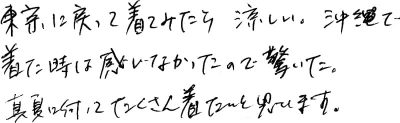 東京に戻って着てみたら 涼しい。沖縄で
着た時は感じなかったので驚いた。
真夏に向けてたくさん着たいと思います。